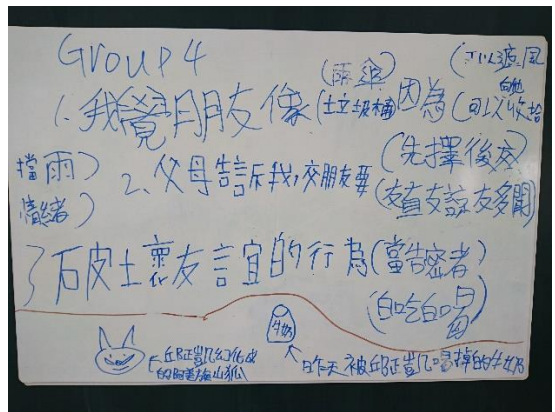 Group 4
1. 我覺朋友像(雨傘)(垃圾桶)因為(可以遮風擋雨)(可以收拾情緒)
2、父母告訴我，交朋友要(先擇後交)(友直友諒友多聞)
3 破壞友誼的行為(當告密者)(白吃白喝)
牛奶
←邱正凱幻化成
的阿里旋山狐
昨天被邱正凱喝掉的牛奶